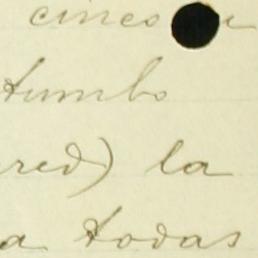 cinco
tumbo
red) la
a todas